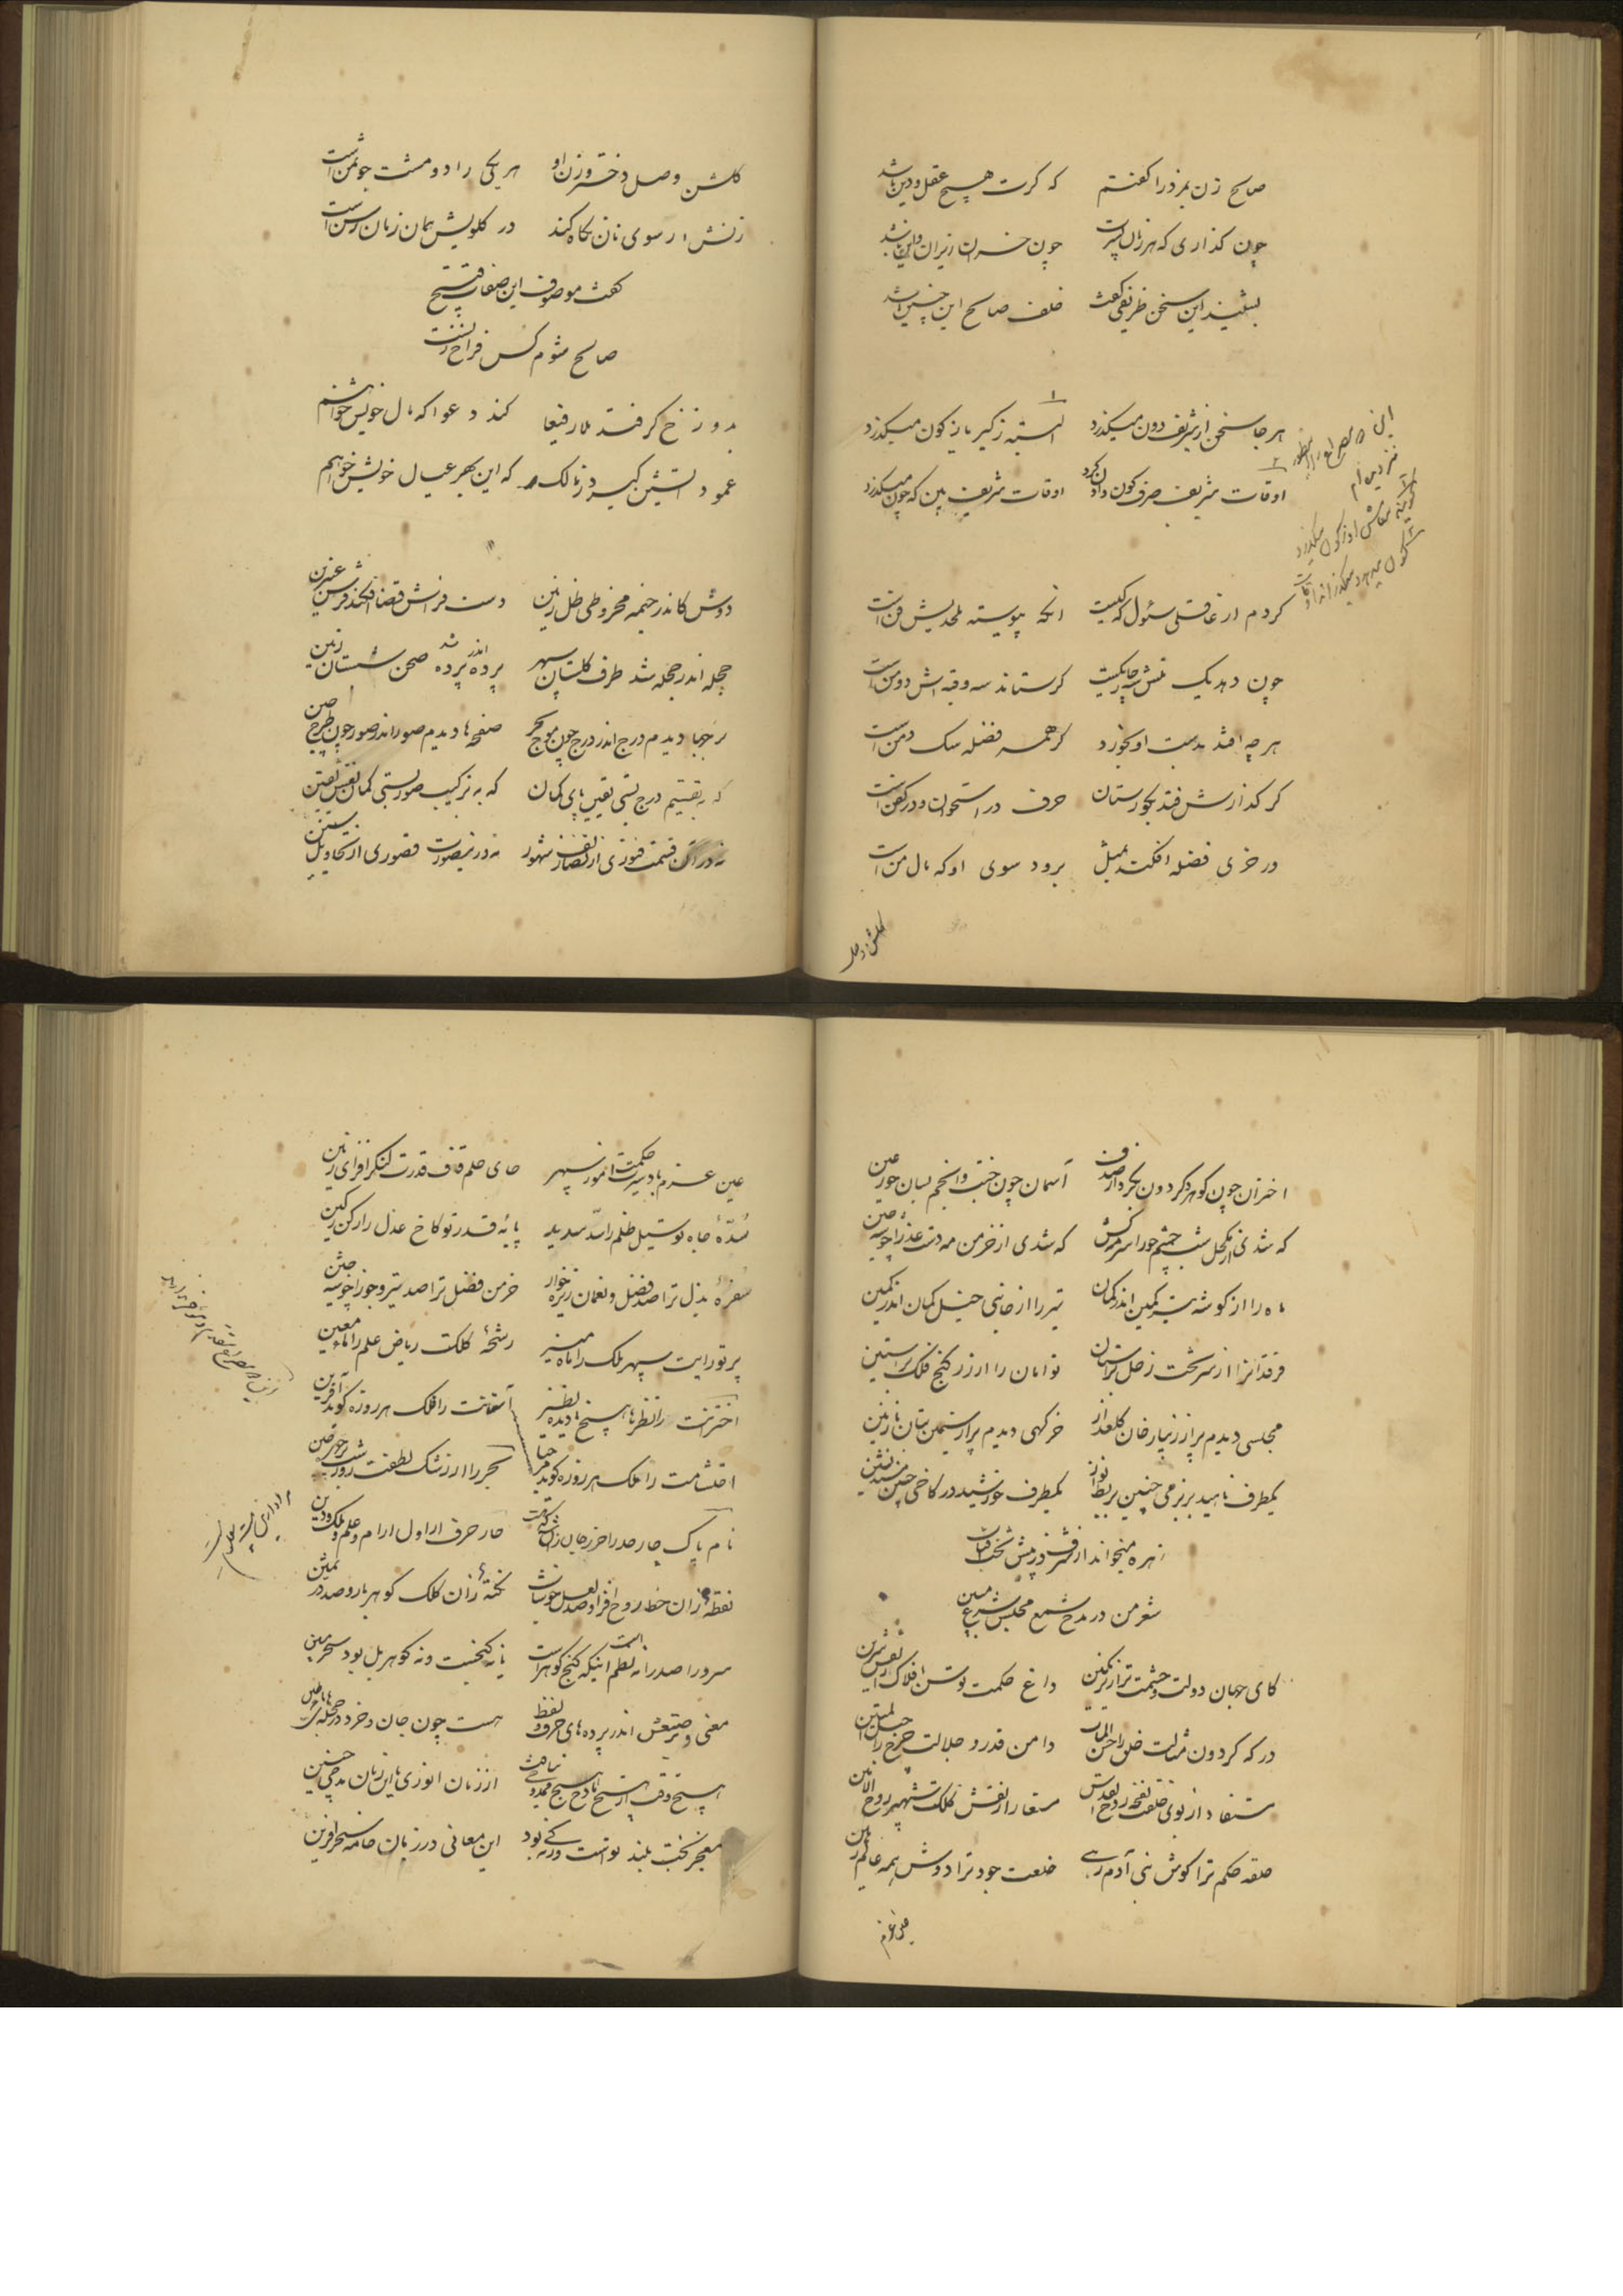 صالح زن بمزد را گفتم که گرت هیچ عقل و دین باشد
چون گذاری که هر زمان پسرت چون خسان زیر این و آن باشد
بشنید این سخن ظریفی گفت خلف صالح این چنین باشد
هر جا سخن از شریف دون میگذرد البته ز گیر یا ز کون میگذرد
اوقات شریف صرف کون دادن کرد اوقات شریف بین که چون میگذرد
این مصراع را
نیز دیده ام
کردم از عاقلی سئول که کیست انکه پیوسته ملحدیش فن است
چون دهد یک کرستاند سه وقیه اش دو من است
هر چه افتد بدست او بخورد گر همه فضله سگ دمن است
گر گذارش فتد بگورستان حرف در استخوان و در کفن است
در خری فضله افکند بمثل برود سوی او که مال من است
گلشن وصل
گلشن وصل دختر و زن او هر یکی را دو مشت جو ثمن است
زنش ار سوی نان نگاه کند در گلویش همان زمان رسن است
گفت موصوف این صفات قبیح
صالح شوم کس فراخ زنست
بدوزخ گر فتد ملا رفیعا کند دعوا که مال خویش خواهم
عمود آتشین گیرد ز مالک که این بهر عیال خویش خواهم
دوش کاندر خیمه مخروطی ظل زمین دست فراش قضا افکند فرش عنبرین
حجله اندر حجله شد طرف گلستان سپهر پرده اندر پرده شد صحن شبستان زمین
برجها دیدم درج اندر درج چون موج بحر صفحه ها دیدم صور اندر صور چون طرح چین
که به تقسیم درج بستی یقین پای گمان که به ترکیب صور بستی گمان نقش یقین
نه در آن قسمت فتوری از تصاریف شهور نه در این صورت قصوری از تجاویل سنین
اختران چون گوهر و گردون بکردار صدف آسمان چون جنت و انجم بسان حور عین
که شدی از کحل شب چشم حور اسرمه کش که شدی از خرمن مه دست عذرا خوشه چین
ماه را از گوشه بیت کمین اندر کمان تیر را از خانه خیل کمان اندر کمین
فرقدانرا از سر تخت زحل توامان را از زر گنج فلک پر آستین
مجلسی دیدم پر از زیبا رخان گلعذار خرگهی دیدم پر از سیمین بتان نازنین
یکطرف ناهید بر بزمی چنین بربط نواز یکطرف خورشید در کاخی چنین مسند نشین
زهره میخواند از شرف در پیش تخت آفتاب
شعر من در مدح شمع مجلس شرع مبین
کای جهان دولت و حشمت ترا زیر نگین داغ حکمت توسن افلاک را نقش سرین
درگه گردون مثالت خلق را حسن المآب دامن قدر و جلالت چرخ را حبل المتین
مستفاد از بوی خلقت نفخه روح القدس مستعار از نقش کلکت شهپر روح الامین
حلقه حکم ترا گوش بنی آدم رهی خلعت جود ترا دوش همه عالم رهین
عین عزم
عین عزم باد سیرت حکمت آموز سپهر حای حلم قاف قدرت لنگر افزای زمین
سده جاه تو سیل ظلم را سد سدید پایه قدر تو کاخ عدل را رکن رکین
سفره بذل ترا صد فضل و نعمان ریزه خوار خرمن فضل ترا صد تیر و جوزا خوشه چین
پرتو رایت سپهر ملک را ماه منیر رشحه کلکت ریاض علم را ماء معین
اخترت را نظرها هیچ نادیده نظیر آستانت را فلک هر روزه گوید آفرین
احتشامت را ملک هر روزه گوید مرحبا بحر را از رشک لطفت روز و شب بر چهره چین
نام پاک چار حرف از اول آرام و علم و ملک و دین
نقطه زان خط روح افزا و صد لعل خوشاب نکته زان کلک گوهر بار و صد در ثمین
سرورا صدرا نه نظم است اینکه گنج گوهر است یا نه گنجست و نه گوهر بل بود سحر مبین
معنی دوشیزه اندر پرده های حرف و لفظ هست چون جان و خرد در حجله
هیچ وقت از هیچ مادح هیچ ممدوحی نیافت از زمان انوری تا این زمان مدحی چنین
معجز بخت بلند تو است ورنه کی بود این معانی در زبان خامه سحر آفرین